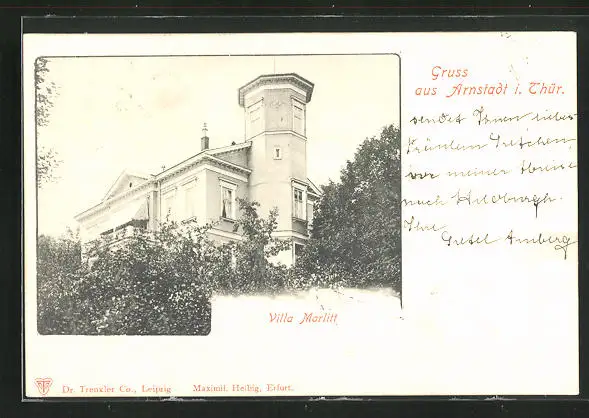 Gruss
aus Arnstadt i. Thür.
sendet Ihnen liebes
Fräulein Gretchen,
vor meiner Abreise
nach Hildburgh.
Ihre
Gretel Amberg
Villa Marlitt
Dr. Trenkler Co., Leipzig Maximil. Helbig, Erfurt.